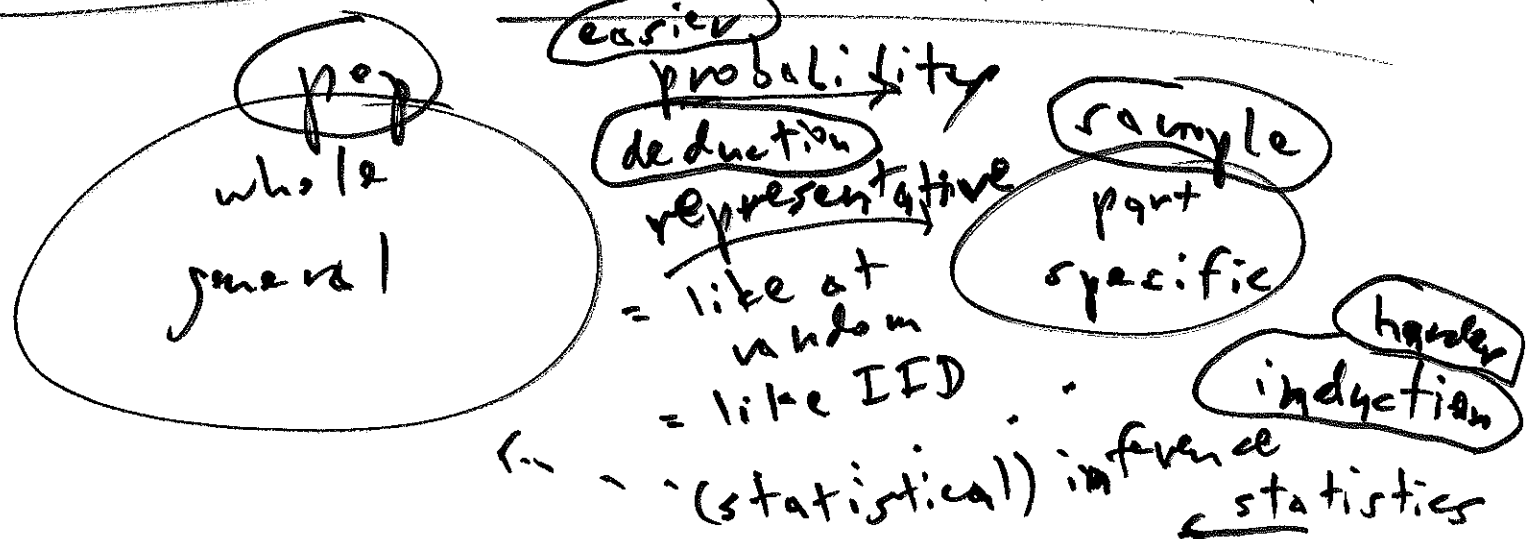 pop
whole
general
easier
probability
deduction
representative
= like at
random
= like IID
sample
part
specific
harder
induction
(statistical) inference
statistics